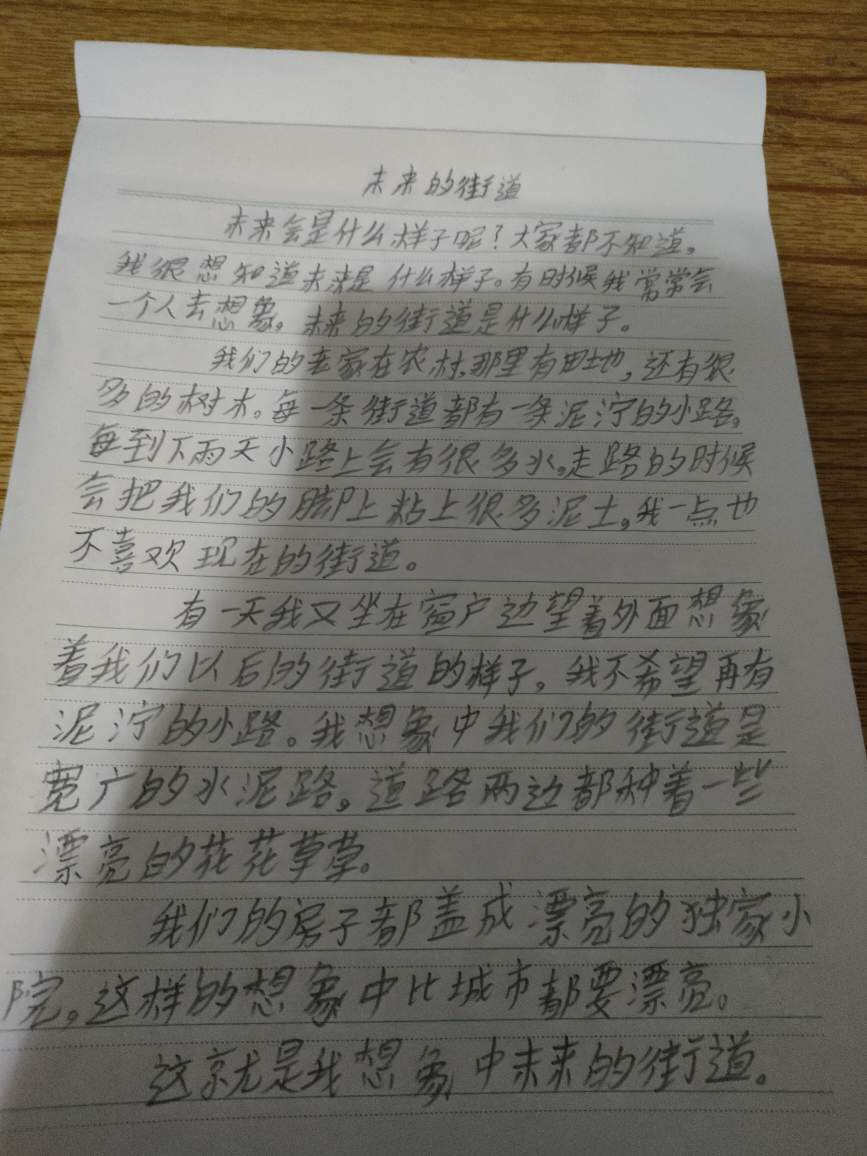 未来的街道
未来会是什么样子呢？大家都不知道，
我很想知道未来是什么样子。有时候我常常会
一个人去想象。未来的街道是什么样子。
我们的老家在农村，那里有田地，还有很
多的树木。每一条街道都有一条泥泞的小路。
每到下雨天小路上会有很多水。走路的时候
会把我们的脚上粘上很多泥土。我一点也
不喜欢现在的街道。
有一天我又坐在窗户边望着外面想象
着我们以后的街道的样子，我不希望再有
泥泞的小路。我想象中我们的街道是
宽广的水泥路。道路两边都种着一些
漂亮的花花草草。
我们的房子都盖成漂亮的独家小
院。这样的想象中比城市都要漂亮。
这就是我想象中未来的街道。